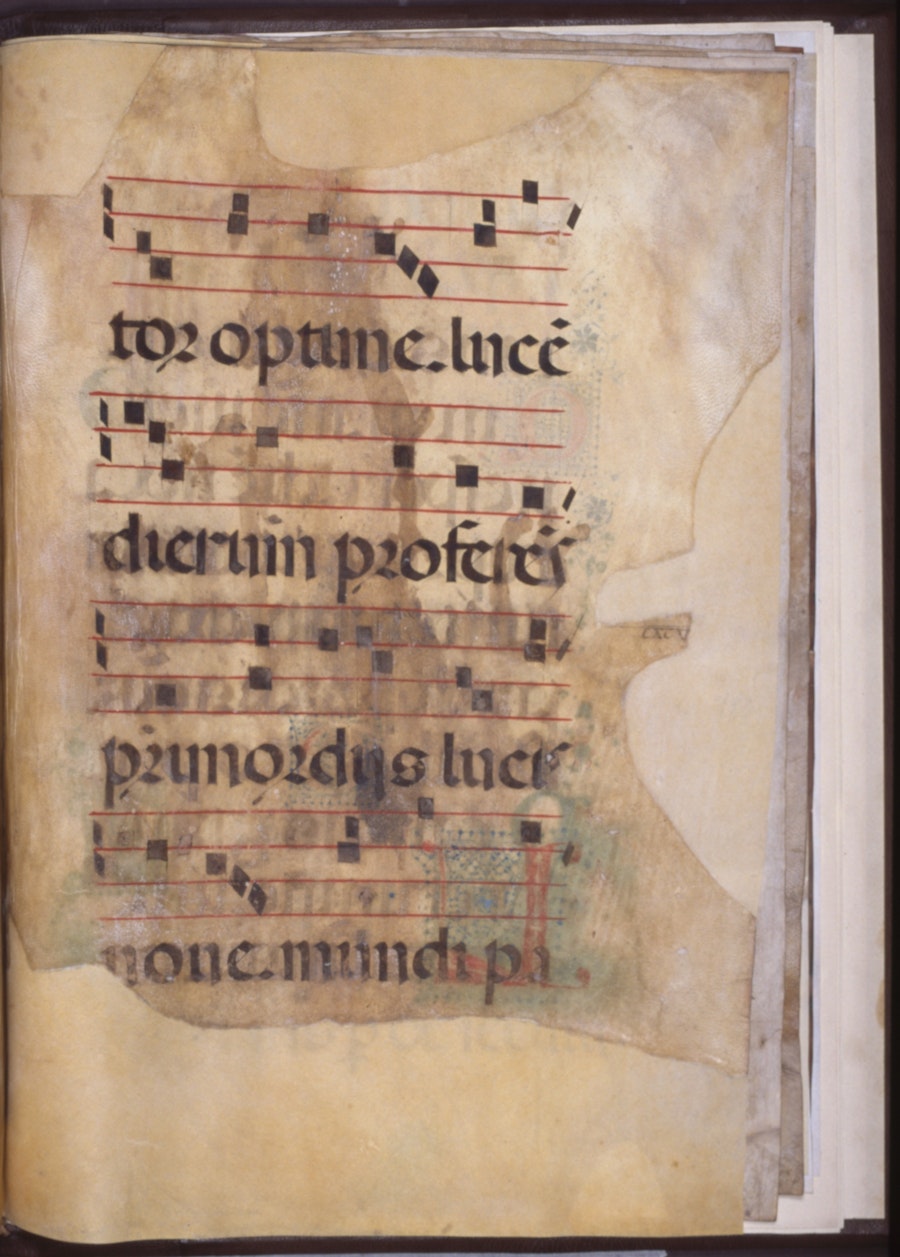 tor optime. lucē
dierum proferēs
primordijs lucis
noue. mundi pa